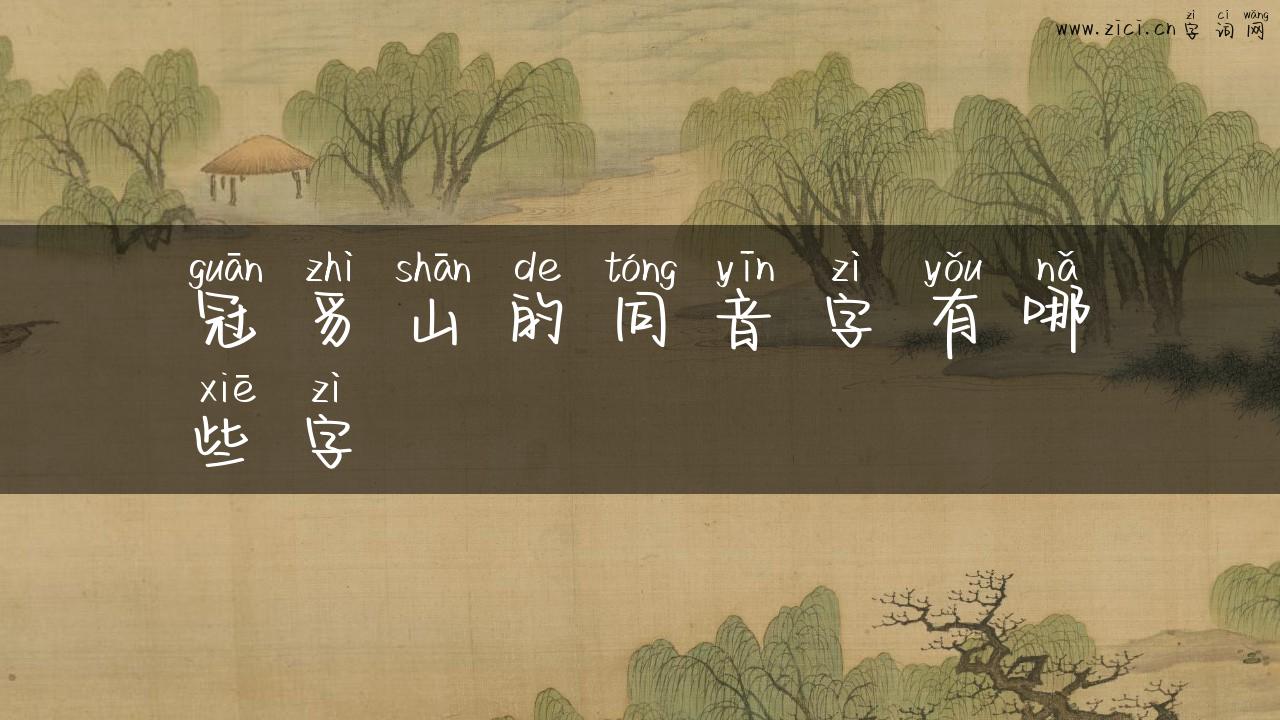 zì cí wǎng
www.zici.cn 字词网
guān zhì shān de tóng yīn zì yǒu nǎ
冠豸山的同音字有哪
xiē zì
些字